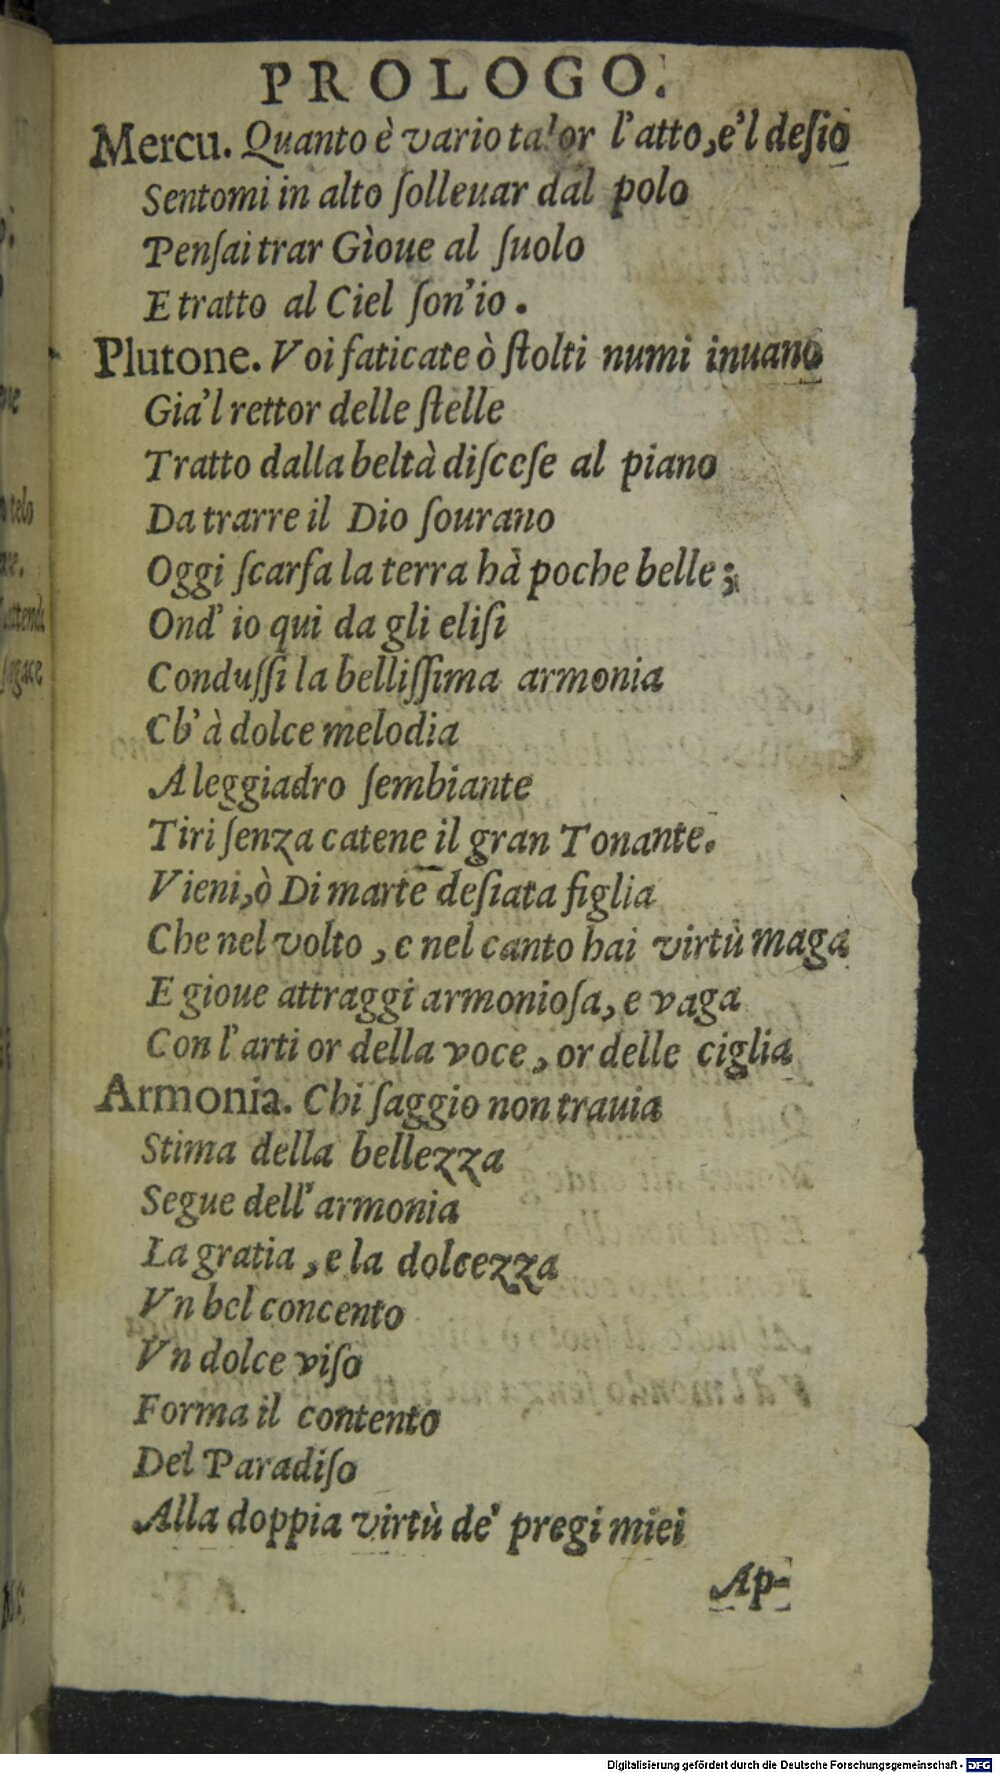 PROLOGO.
Mercu. Quanto è vario talor l'atto, e'l deſio
Sentomi in alto ſolleuar dal polo
Penſai trar Gioue al ſuolo
E tratto al Ciel ſon'io.
Plutone. Voi faticate ò ſtolti numi inuano
Gia'l rettor delle ſtelle
Tratto dalla beltà diſceſe al piano
Da trarre il Dio ſourano
Oggi ſcarſa la terra hà poche belle;
Ond' io qui da gli eliſi
Conduſſi la belliſſima armonia
Ch' à dolce melodia
A leggiadro ſembiante
Tiri ſenza catene il gran Tonante.
Vieni, ò Di marte deſiata figlia
Che nel volto, e nel canto hai virtù maga
E gioue attraggi armonioſa, e vaga
Con l'arti or della voce, or delle ciglia
Armonia. Chi ſaggio non trauia
Stima della bellezza
Segue dell' armonia
La gratia, e la dolcezza
Vn bel concento
Vn dolce viſo
Forma il contento
Del Paradiſo
Alla doppia virtù de' pregi miei
Ap-
Digitalisierung gefördert durch die Deutsche Forschungsgemeinschaft - DFG